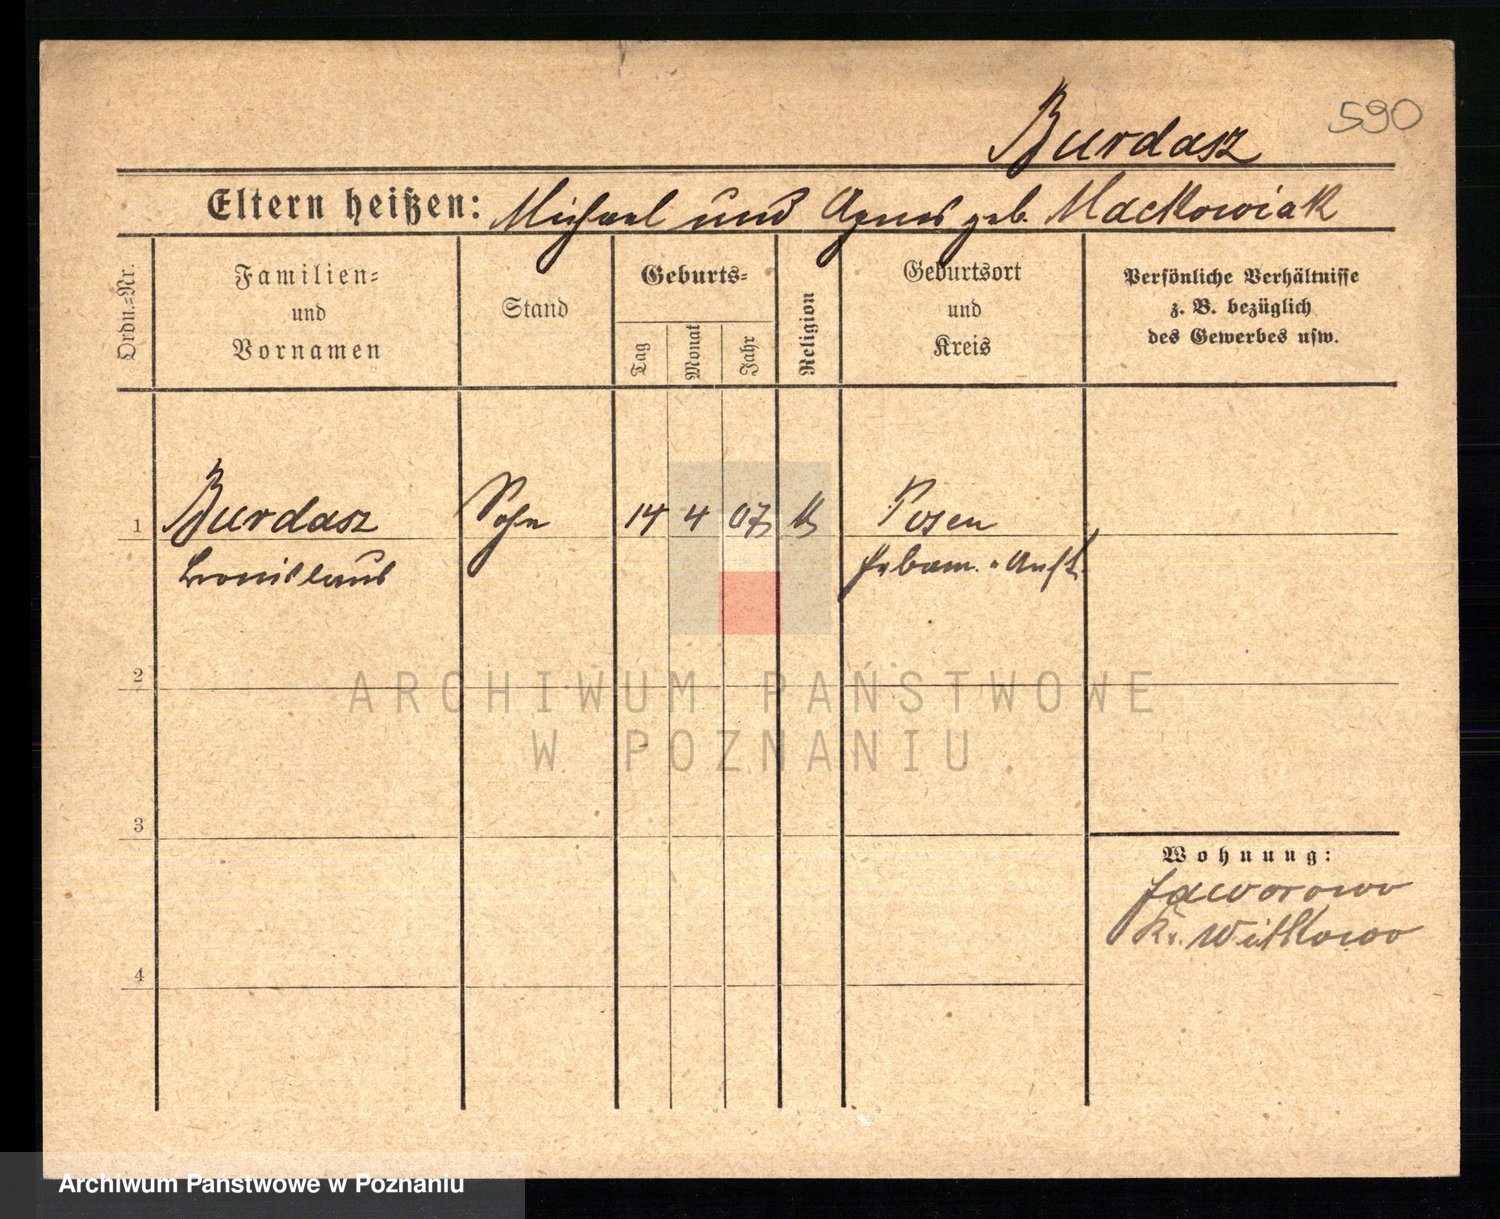 590
Burdasz
Eltern heißen: Michael und Agnes geb. Mackowiak
Ordn.=Nr.
Familien=
und
Vornamen
Stand
Geburts=
Tag
Monat
Jahr
Religion
Geburtsort
und
Kreis
Persönliche Verhältnisse
z. B. bezüglich
des Gewerbes usw.
1 Burdasz Sohn 14 4 07 k Posen
Bronislaus Hebam. Anst.
2
3
4
Wohnung:
Jaworowo
Kr. Witkowo
ARCHIWUM PAŃSTWOWE
W POZNANIU
Archiwum Państwowe w Poznaniu